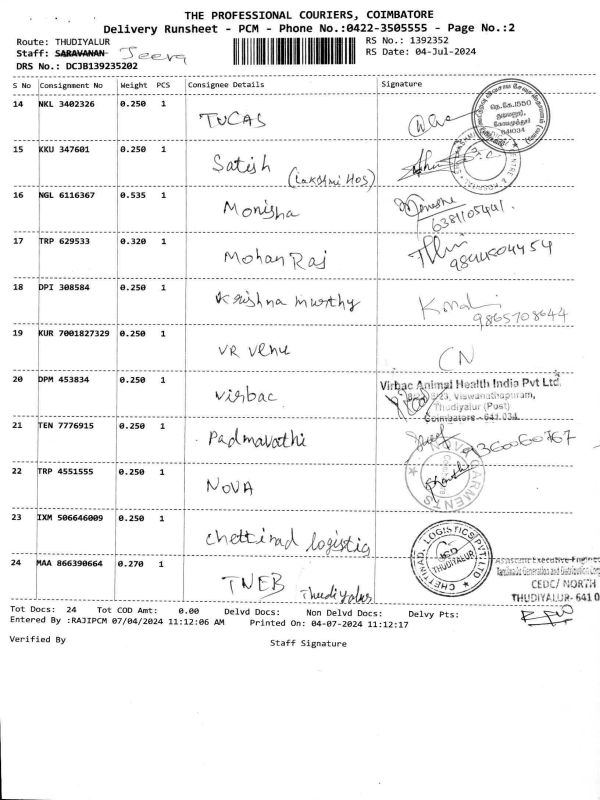 THE PROFESSIONAL COURIERS, COIMBATORE
Delivery Runsheet - PCM - Phone No.:0422-3505555 - Page No.:2
Route: THUDIYALUR
RS No.: 1392352
Staff: SARAVANAN Jeeva
RS Date: 04-Jul-2024
DRS No.: DCJB139235202
S No Consignment No Weight PCS Consignee Details Signature
14 NKL 3402326 0.250 1 TUCAS
641034
15 KKU 347601 0.250 1 Satish (Lakshmi Hos)
16 NGL 6116367 0.535 1 Monisha
6381105441.
17 TRP 629533 0.320 1 Mohan Raj
9844504454
18 DPI 308584 0.250 1 Krishna murthy
9865708644
19 KUR 7001827329 0.250 1 VR Venu CN
20 DPM 453834 0.250 1 Virbac
Virbac Animal Health India Pvt Ltd.
Viswanathapuram,
Thudiyalur (Post)
Coimbatore - 641 034
21 TEN 7776915 0.250 1 Padmavathi
9360060767
22 TRP 4551555 0.250 1 NOVA
NOVA GARMENTS
23 IXM 506646009 0.250 1 Chettinad logistig
CHETTINAD LOGISTICS PVT. LTD
THUDIYALUR
24 MAA 866390664 0.270 1 TNEB Thudiyalur
Assistant Executive Engineer
Tamilnadu Generation and Distribution Corp
CEDC/ NORTH
THUDIYALUR- 641 0
Tot Docs: 24 Tot COD Amt: 0.00 Delvd Docs: Non Delvd Docs: Delvy Pts:
Entered By :RAJIPCM 07/04/2024 11:12:06 AM Printed On: 04-07-2024 11:12:17
Verified By Staff Signature